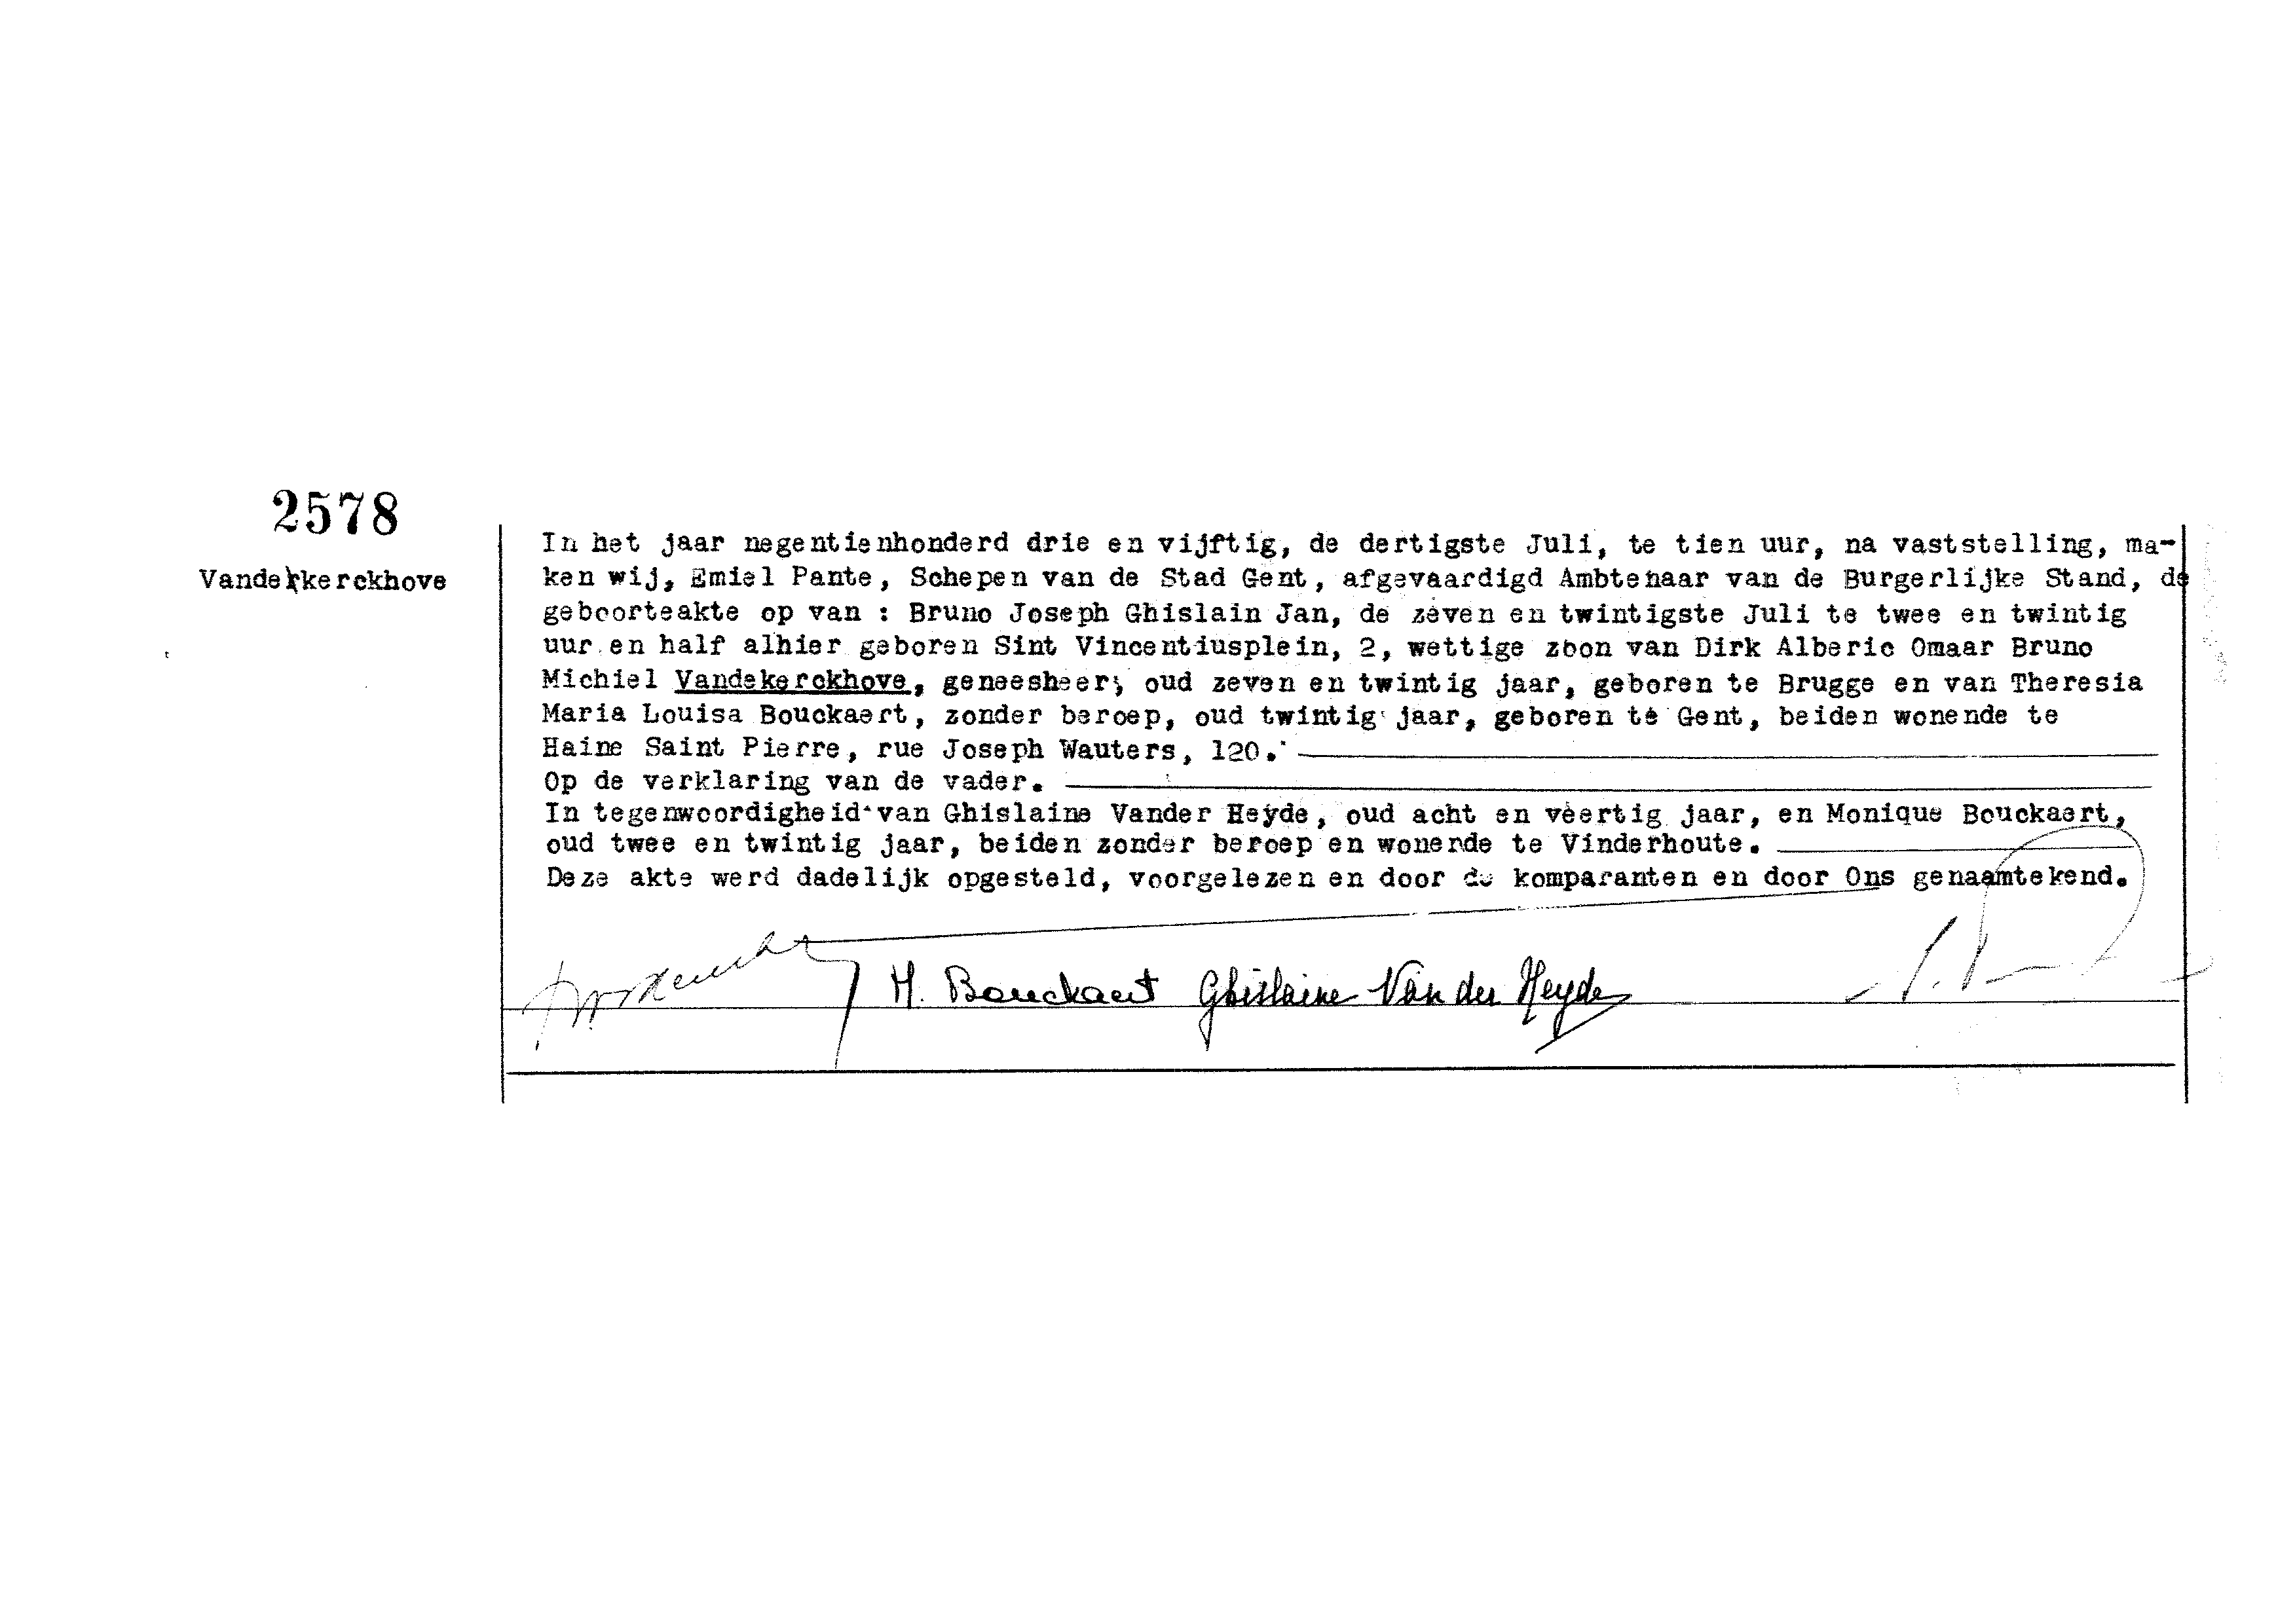 2578
Vandekerckhove
In het jaar negentienhonderd drie en vijftig, de dertigste Juli, te tien uur, na vaststelling, ma-
ken wij, Emiel Pante, Schepen van de Stad Gent, afgevaardigd Ambtenaar van de Burgerlijke Stand, de
geboorteakte op van : Bruno Joseph Ghislain Jan, de zeven en twintigste Juli te twee en twintig
uur en half alhier geboren Sint Vincentiusplein, 2, wettige zoon van Dirk Alberic Omaar Bruno
Michiel Vandekerckhove, geneesheer, oud zeven en twintig jaar, geboren te Brugge en van Theresia
Maria Louisa Bouckaert, zonder beroep, oud twintig jaar, geboren te Gent, beiden wonende te
Haine Saint Pierre, rue Joseph Wauters, 120.
Op de verklaring van de vader.
In tegenwoordigheid van Ghislaine Vander Heyde, oud acht en veertig jaar, en Monique Bouckaert,
oud twee en twintig jaar, beiden zonder beroep en wonende te Vinderhoute.
Deze akte werd dadelijk opgesteld, voorgelezen en door de komparanten en door Ons genaamtekend.
M. Bouckaert Ghislaine Van der Heyde